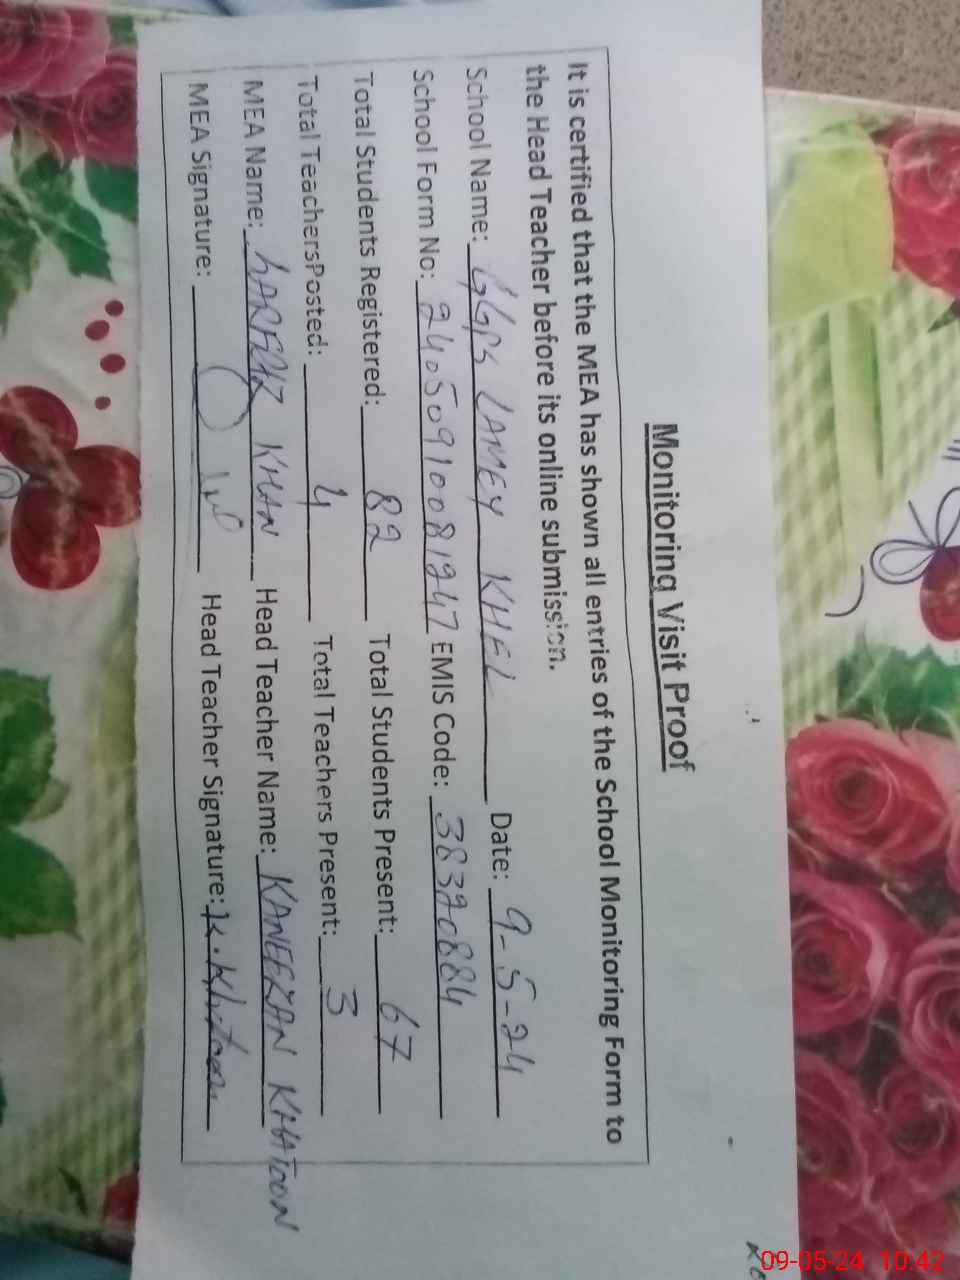 Monitoring Visit Proof
It is certified that the MEA has shown all entries of the School Monitoring Form to
the Head Teacher before its online submission.
School Name: GGPS LAMEY KHEL Date: 9-5-24
School Form No: 24050910081247 EMIS Code: 38320884
Total Students Registered: 82 Total Students Present: 67
Total TeachersPosted: 4 Total Teachers Present: 3
MEA Name: KHAN Head Teacher Name: KANEEZAN KHATOON
MEA Signature: Head Teacher Signature: K. Khatoon
09-05-24 10:42